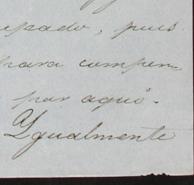 upado, pues
para compen
par aquí.
Ygualmente